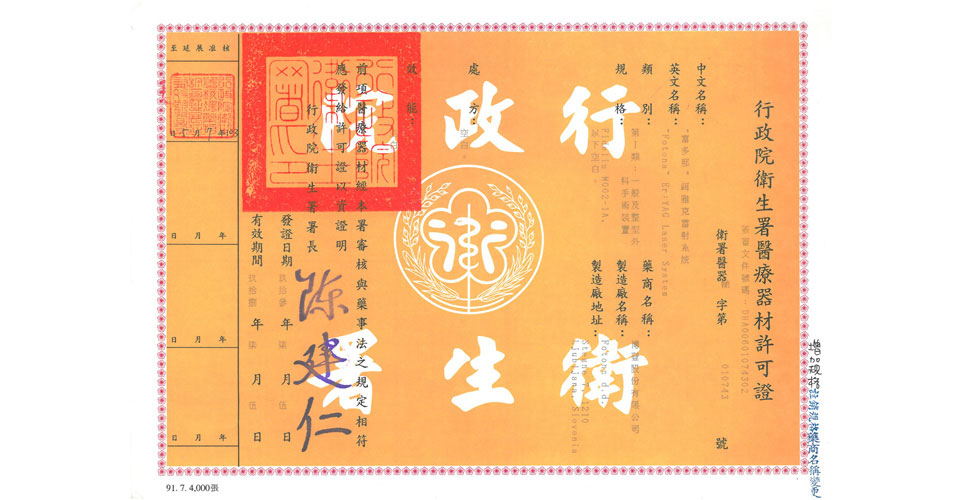 行政院衛生署醫療器材許可證
簽審文件號碼：DHA00601074302
衛署醫器 字第 010743 號
中文名稱：
"富多那" 鉺雅克雷射系統
英文名稱：
"Fotona" Er:YAG Laser System
類別：
第二類：一般及整型外
科手術裝置
規格：
Fidelis M002-1A.
以下空白。
藥商名稱：
股份有限公司
製造廠名稱：
Fotona d.d.
製造廠地址：
1210
Ljubljana, Slovenia
處方：
空白。
效能：
前項醫療器材經本署審核與藥事法之規定相符
應發給許可證以資證明
行政院衛生署署長
陳建仁
發證日期
玖拾參 年 柒 月 伍 日
有效期間
玖拾捌 年 柒 月 伍 日
行政院
衛生署
核准展延至
年 月 日
年 月 日
年 月 日
增加規格
註銷規格
藥商名稱變更
91. 7. 4,000張